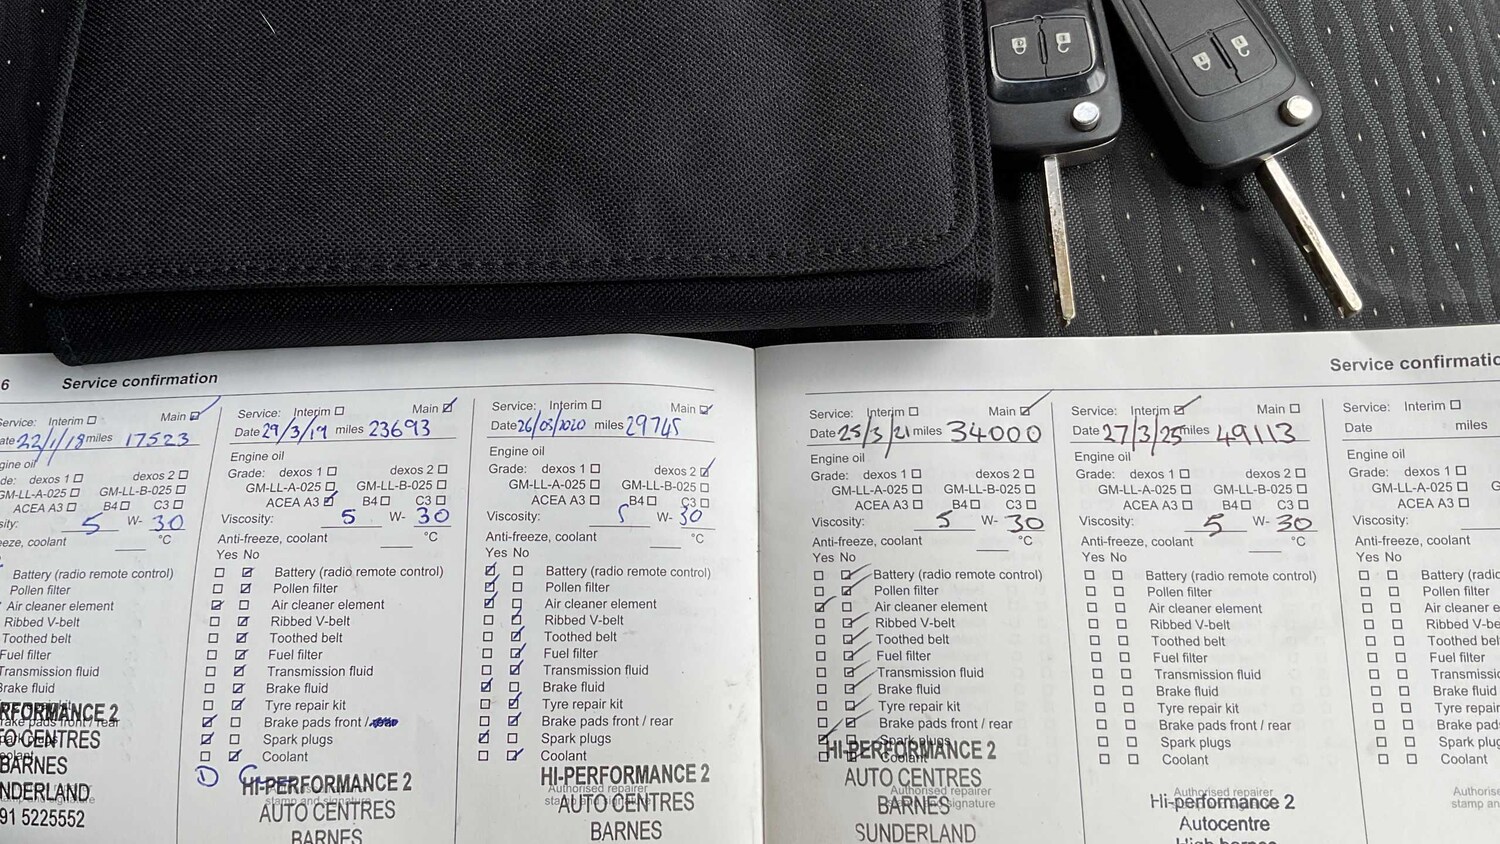 6 Service confirmation
Service: Interim Main
ate 22/1/18 miles 17523
ngine oil
de: dexos 1 dexos 2
GM-LL-A-025 GM-LL-B-025
ACEA A3 B4 C3
sity: 5 W- 30
eeze, coolant °C
Battery (radio remote control)
Pollen filter
Air cleaner element
Ribbed V-belt
Toothed belt
Fuel filter
Transmission fluid
Brake fluid
RFORMANCE 2
rake pads front / rear
TO CENTRES
BARNES
NDERLAND
91 5225552
Service: Interim Main
Date 29/3/19 miles 23693
Engine oil
Grade: dexos 1 dexos 2
GM-LL-A-025 GM-LL-B-025
ACEA A3 B4 C3
Viscosity: 5 W- 30
Anti-freeze, coolant °C
Yes No
Battery (radio remote control)
Pollen filter
Air cleaner element
Ribbed V-belt
Toothed belt
Fuel filter
Transmission fluid
Brake fluid
Tyre repair kit
Brake pads front /
Spark plugs
Coolant
HI-PERFORMANCE 2
stamp and signature
AUTO CENTRES
BARNES
Service: Interim Main
Date 26/03/2020 miles 29745
Engine oil
Grade: dexos 1 dexos 2
GM-LL-A-025 GM-LL-B-025
ACEA A3 B4 C3
Viscosity: 5 W- 30
Anti-freeze, coolant °C
Yes No
Battery (radio remote control)
Pollen filter
Air cleaner element
Ribbed V-belt
Toothed belt
Fuel filter
Transmission fluid
Brake fluid
Tyre repair kit
Brake pads front / rear
Spark plugs
Coolant
HI-PERFORMANCE 2
Authorised repairer
AUTO CENTRES
BARNES
Service confirmatio
Service: Interim Main
Date 25/3/21 miles 34000
Engine oil
Grade: dexos 1 dexos 2
GM-LL-A-025 GM-LL-B-025
ACEA A3 B4 C3
Viscosity: 5 W- 30
Anti-freeze, coolant °C
Yes No
Battery (radio remote control)
Pollen filter
Air cleaner element
Ribbed V-belt
Toothed belt
Fuel filter
Transmission fluid
Brake fluid
Tyre repair kit
Brake pads front / rear
Spark plugs
HI-PERFORMANCE 2
Coolant
AUTO CENTRES
Authorised repairer
BARNES
SUNDERLAND
Service: Interim Main
Date 27/3/25 miles 49113
Engine oil
Grade: dexos 1 dexos 2
GM-LL-A-025 GM-LL-B-025
ACEA A3 B4 C3
Viscosity: 5 W- 30
Anti-freeze, coolant °C
Yes No
Battery (radio remote control)
Pollen filter
Air cleaner element
Ribbed V-belt
Toothed belt
Fuel filter
Transmission fluid
Brake fluid
Tyre repair kit
Brake pads front / rear
Spark plugs
Coolant
Authorised repairer
Hi-performance 2
Autocentre
High barnes
Service: Interim
Date miles
Engine oil
Grade: dexos 1
GM-LL-A-025 G
ACEA A3
Viscosity:
Anti-freeze, coolant
Yes No
Battery (radio
Pollen filter
Air cleaner e
Ribbed V-be
Toothed belt
Fuel filter
Transmissio
Brake fluid
Tyre repair
Brake pads
Spark plugs
Coolant
Authorise
stamp an